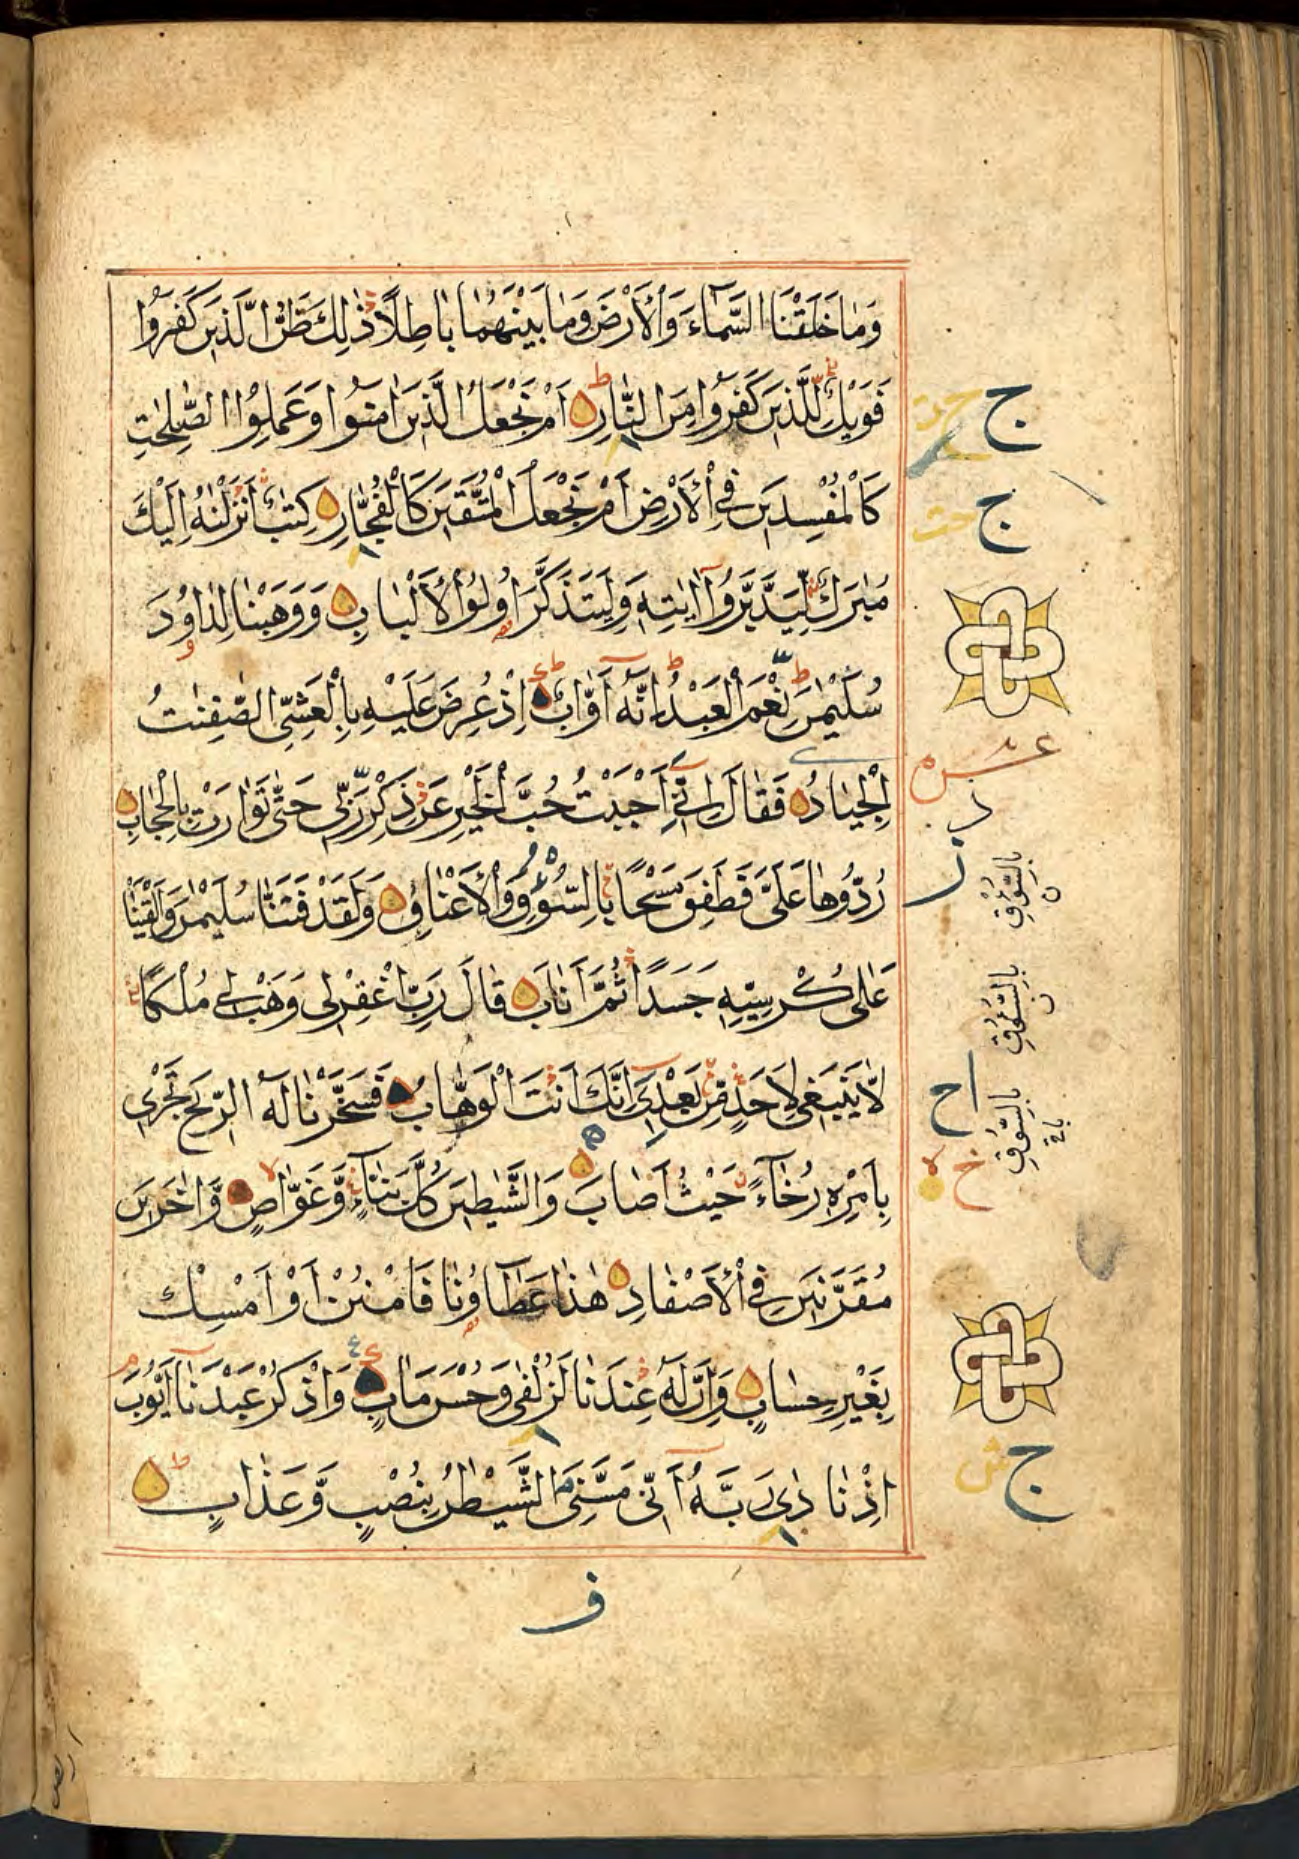 وَمَا خَلَقْنَا السَّمَاءَ وَالْأَرْضَ وَمَا بَيْنَهُمَا بَاطِلًا ذٰلِكَ ظَنُّ الَّذِينَ كَفَرُوا
فَوَيْلٌ لِلَّذِينَ كَفَرُوا مِنَ النَّارِ اَمْ نَجْعَلُ الَّذِينَ اٰمَنُوا وَعَمِلُوا الصّٰلِحٰتِ
كَالْمُفْسِدِينَ فِي الْأَرْضِ اَمْ نَجْعَلُ الْمُتَّقِينَ كَالْفُجَّارِ كِتٰبٌ اَنْزَلْنٰهُ اِلَيْكَ
مُبٰرَكٌ لِيَدَّبَّرُوا اٰيٰتِهِ وَلِيَتَذَكَّرَ اُولُوا الْأَلْبَابِ وَوَهَبْنَا لِدَاوُدَ
سُلَيْمٰنَ نِعْمَ الْعَبْدُ اِنَّهُ اَوَّابٌ اِذْ عُرِضَ عَلَيْهِ بِالْعَشِيِّ الصّٰفِنٰتُ
الْجِيَادُ فَقَالَ اِنِّي اَحْبَبْتُ حُبَّ الْخَيْرِ عَنْ ذِكْرِ رَبِّي حَتّٰى تَوَارَتْ بِالْحِجَابِ
رُدُّوهَا عَلَيَّ فَطَفِقَ مَسْحًا بِالسُّوقِ وَالْأَعْنَاقِ وَلَقَدْ فَتَنَّا سُلَيْمٰنَ وَاَلْقَيْنَا
عَلٰى كُرْسِيِّهِ جَسَدًا ثُمَّ اَنَابَ قَالَ رَبِّ اغْفِرْ لِي وَهَبْ لِي مُلْكًا
لَا يَنْبَغِي لِاَحَدٍ مِنْ بَعْدِي اِنَّكَ اَنْتَ الْوَهَّابُ فَسَخَّرْنَا لَهُ الرِّيحَ تَجْرِي
بِاَمْرِهِ رُخَاءً حَيْثُ اَصَابَ وَالشَّيٰطِينَ كُلَّ بَنَّاءٍ وَغَوَّاصٍ وَاٰخَرِينَ
مُقَرَّنِينَ فِي الْأَصْفَادِ هٰذَا عَطَاؤُنَا فَامْنُنْ اَوْ اَمْسِكْ
بِغَيْرِ حِسَابٍ وَاِنَّ لَهُ عِنْدَنَا لَزُلْفٰى وَحُسْنَ مَاٰبٍ وَاذْكُرْ عَبْدَنَا اَيُّوبَ
اِذْ نَادٰى رَبَّهُ اَنِّي مَسَّنِيَ الشَّيْطٰنُ بِنُصْبٍ وَعَذَابٍ
ف
ج
ج
بِالسُّؤْقِ
بِالسُّؤُقِ
بِالسُّوقِ
ج